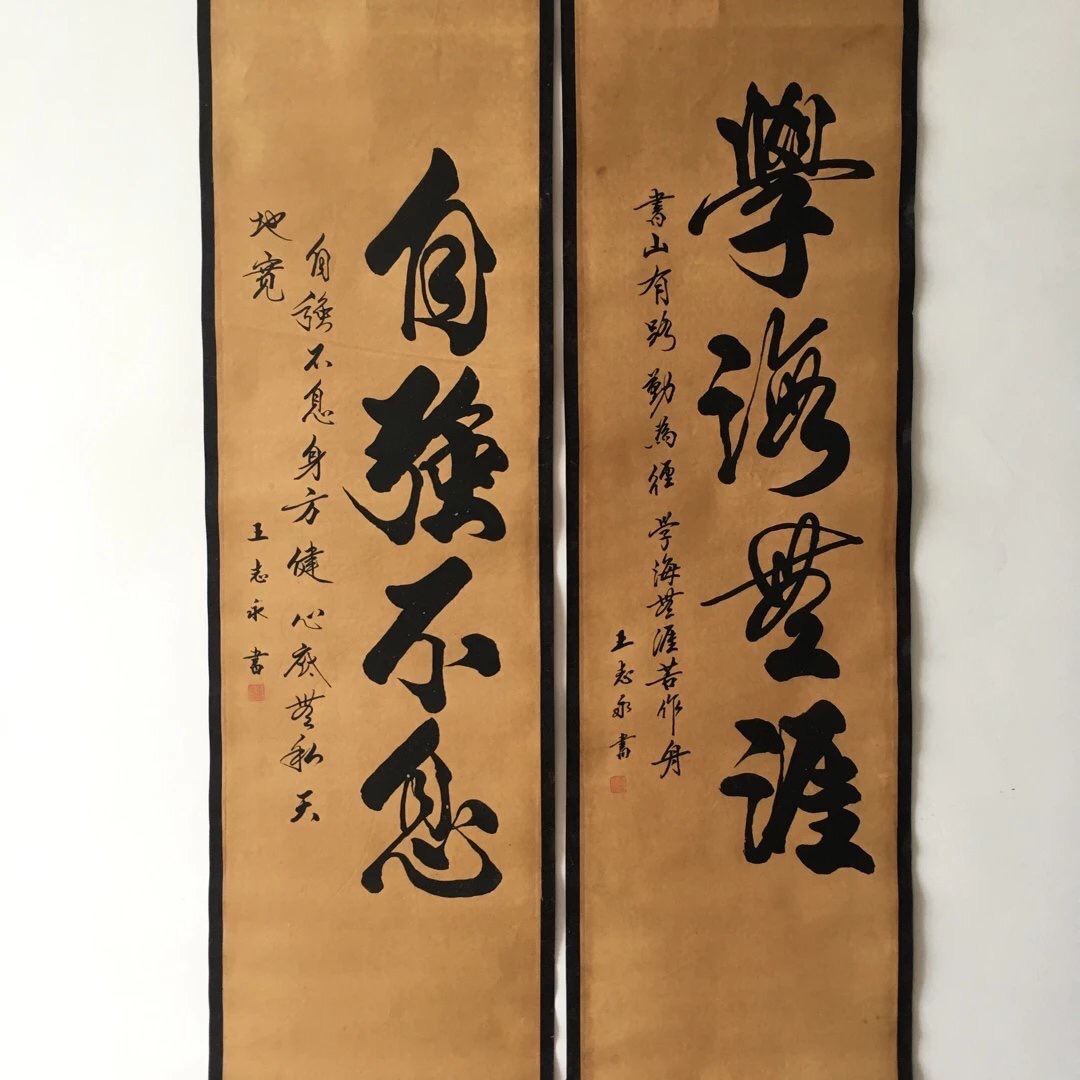 學海無涯
書山有路勤為徑 学海無涯苦作舟
王志永書
自強不息
自強不息身方健 心底無私天
地寬
王志永書